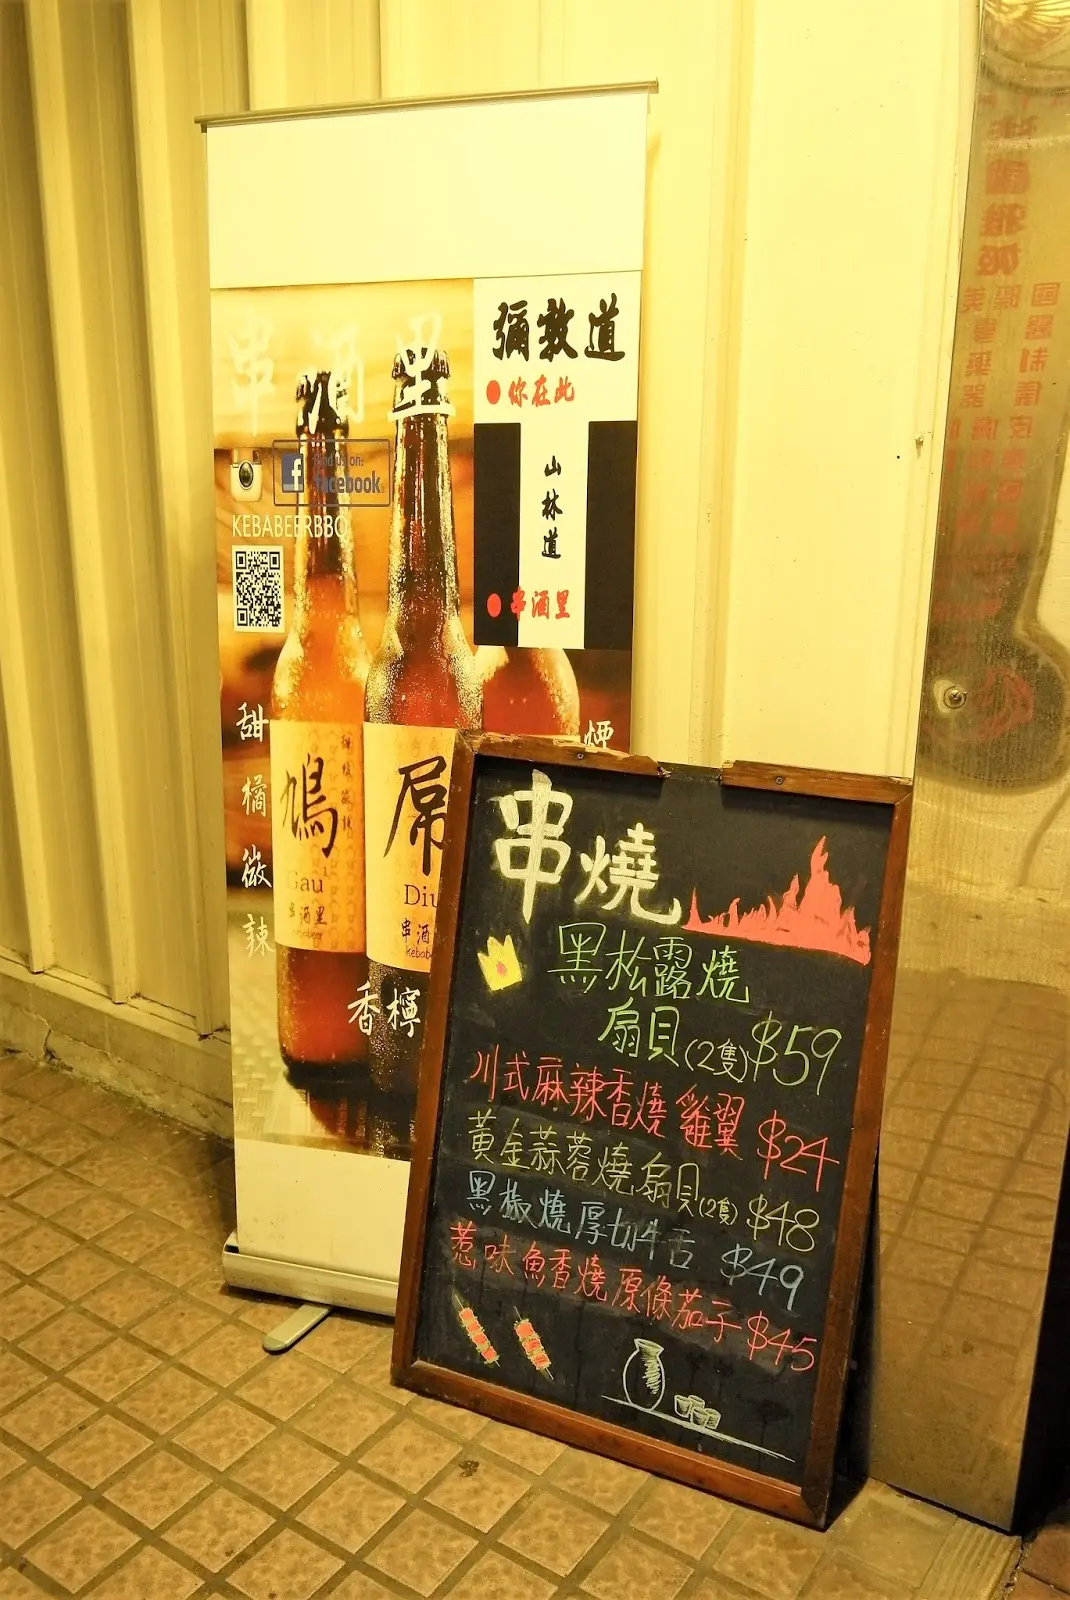 串酒里
find us on:
facebook
KEBABEERBBQ
彌敦道
你在此
山林道
串酒里
甜橘微辣
鳩
Gau
串酒里
屌
Diu
串酒
kebab
香檸
煙
串燒
黑松露燒
扇貝(2隻)$59
川式麻辣香燒雞翼 $24
黃金蒜蓉燒扇貝(2隻) $48
黑椒燒厚切牛舌 $49
惹味魚香燒原條茄子 $45